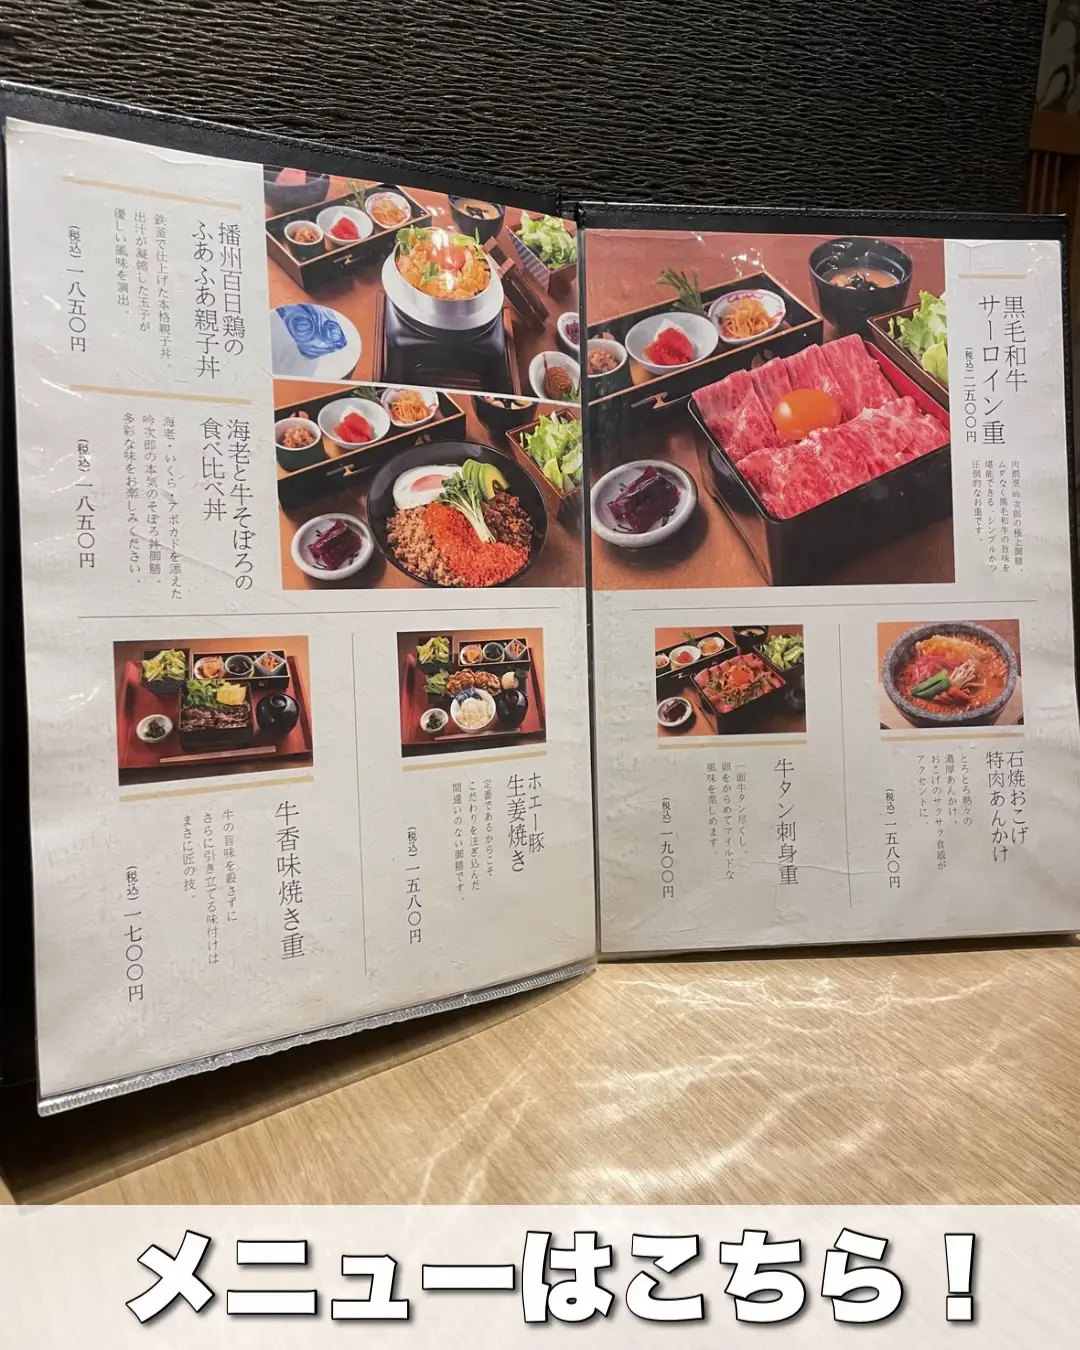 黒毛和牛
サーロイン重
(税込)二五〇〇円
肉割烹 吟次郎の極上御膳。
ムダなく黒毛和牛の旨味を
堪能できる、シンプルかつ
圧倒的なお重です。
石焼おこげ
特肉あんかけ
とろとろ熱々の
濃厚あんかけ。
おこげのサクサク食感が
アクセントに。
(税込)一五八〇円
牛タン刺身重
一面牛タン尽くし。
卵をからめてマイルドな
風味を楽しめます。
(税込)一九〇〇円
播州百日鶏の
ふあふあ親子丼
鉄釜で仕上げた本格親子丼。
出汁が凝縮した玉子が
優しい風味を演出。
(税込)一八五〇円
海老と牛そぼろの
食べ比べ丼
海老・いくら・アボカドを添えた
吟次郎の本気のそぼろ丼御膳。
多彩な味をお楽しみください。
(税込)一八五〇円
ホエー豚
生姜焼き
定番であるからこそ
こだわりを注ぎ込んだ
間違いのない御膳です。
(税込)一五八〇円
牛香味焼き重
牛の旨味を殺さずに
さらに引き立てる味付けは
まさに匠の技。
(税込)一七〇〇円
メニューはこちら！